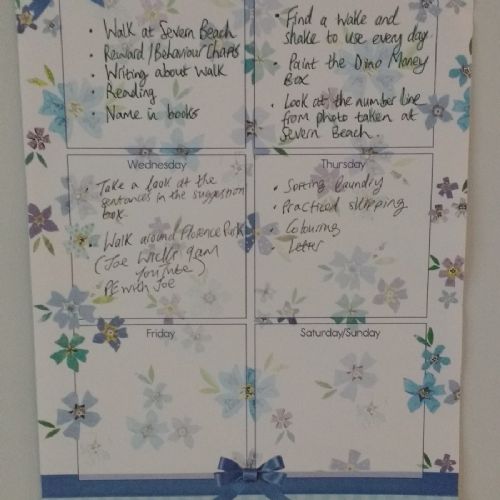 • Walk at Severn Beach
• Reward/Behaviour Charts
• Writing about walk
• Reading
• Name in books
• Find a wake and
shake to use every day
• Paint the Dino Money
Box
• Look at the number line
from photo taken at
Severn Beach.
Wednesday
• Take a look at the
sentences in the suggestion
box.
• Walk around Florence Park
(Joe Wicks 9am
YouTube)
PE with Joe
Thursday
• Sorting laundry
• Practiced skipping
• Colouring
• Letter
Friday
Saturday/Sunday